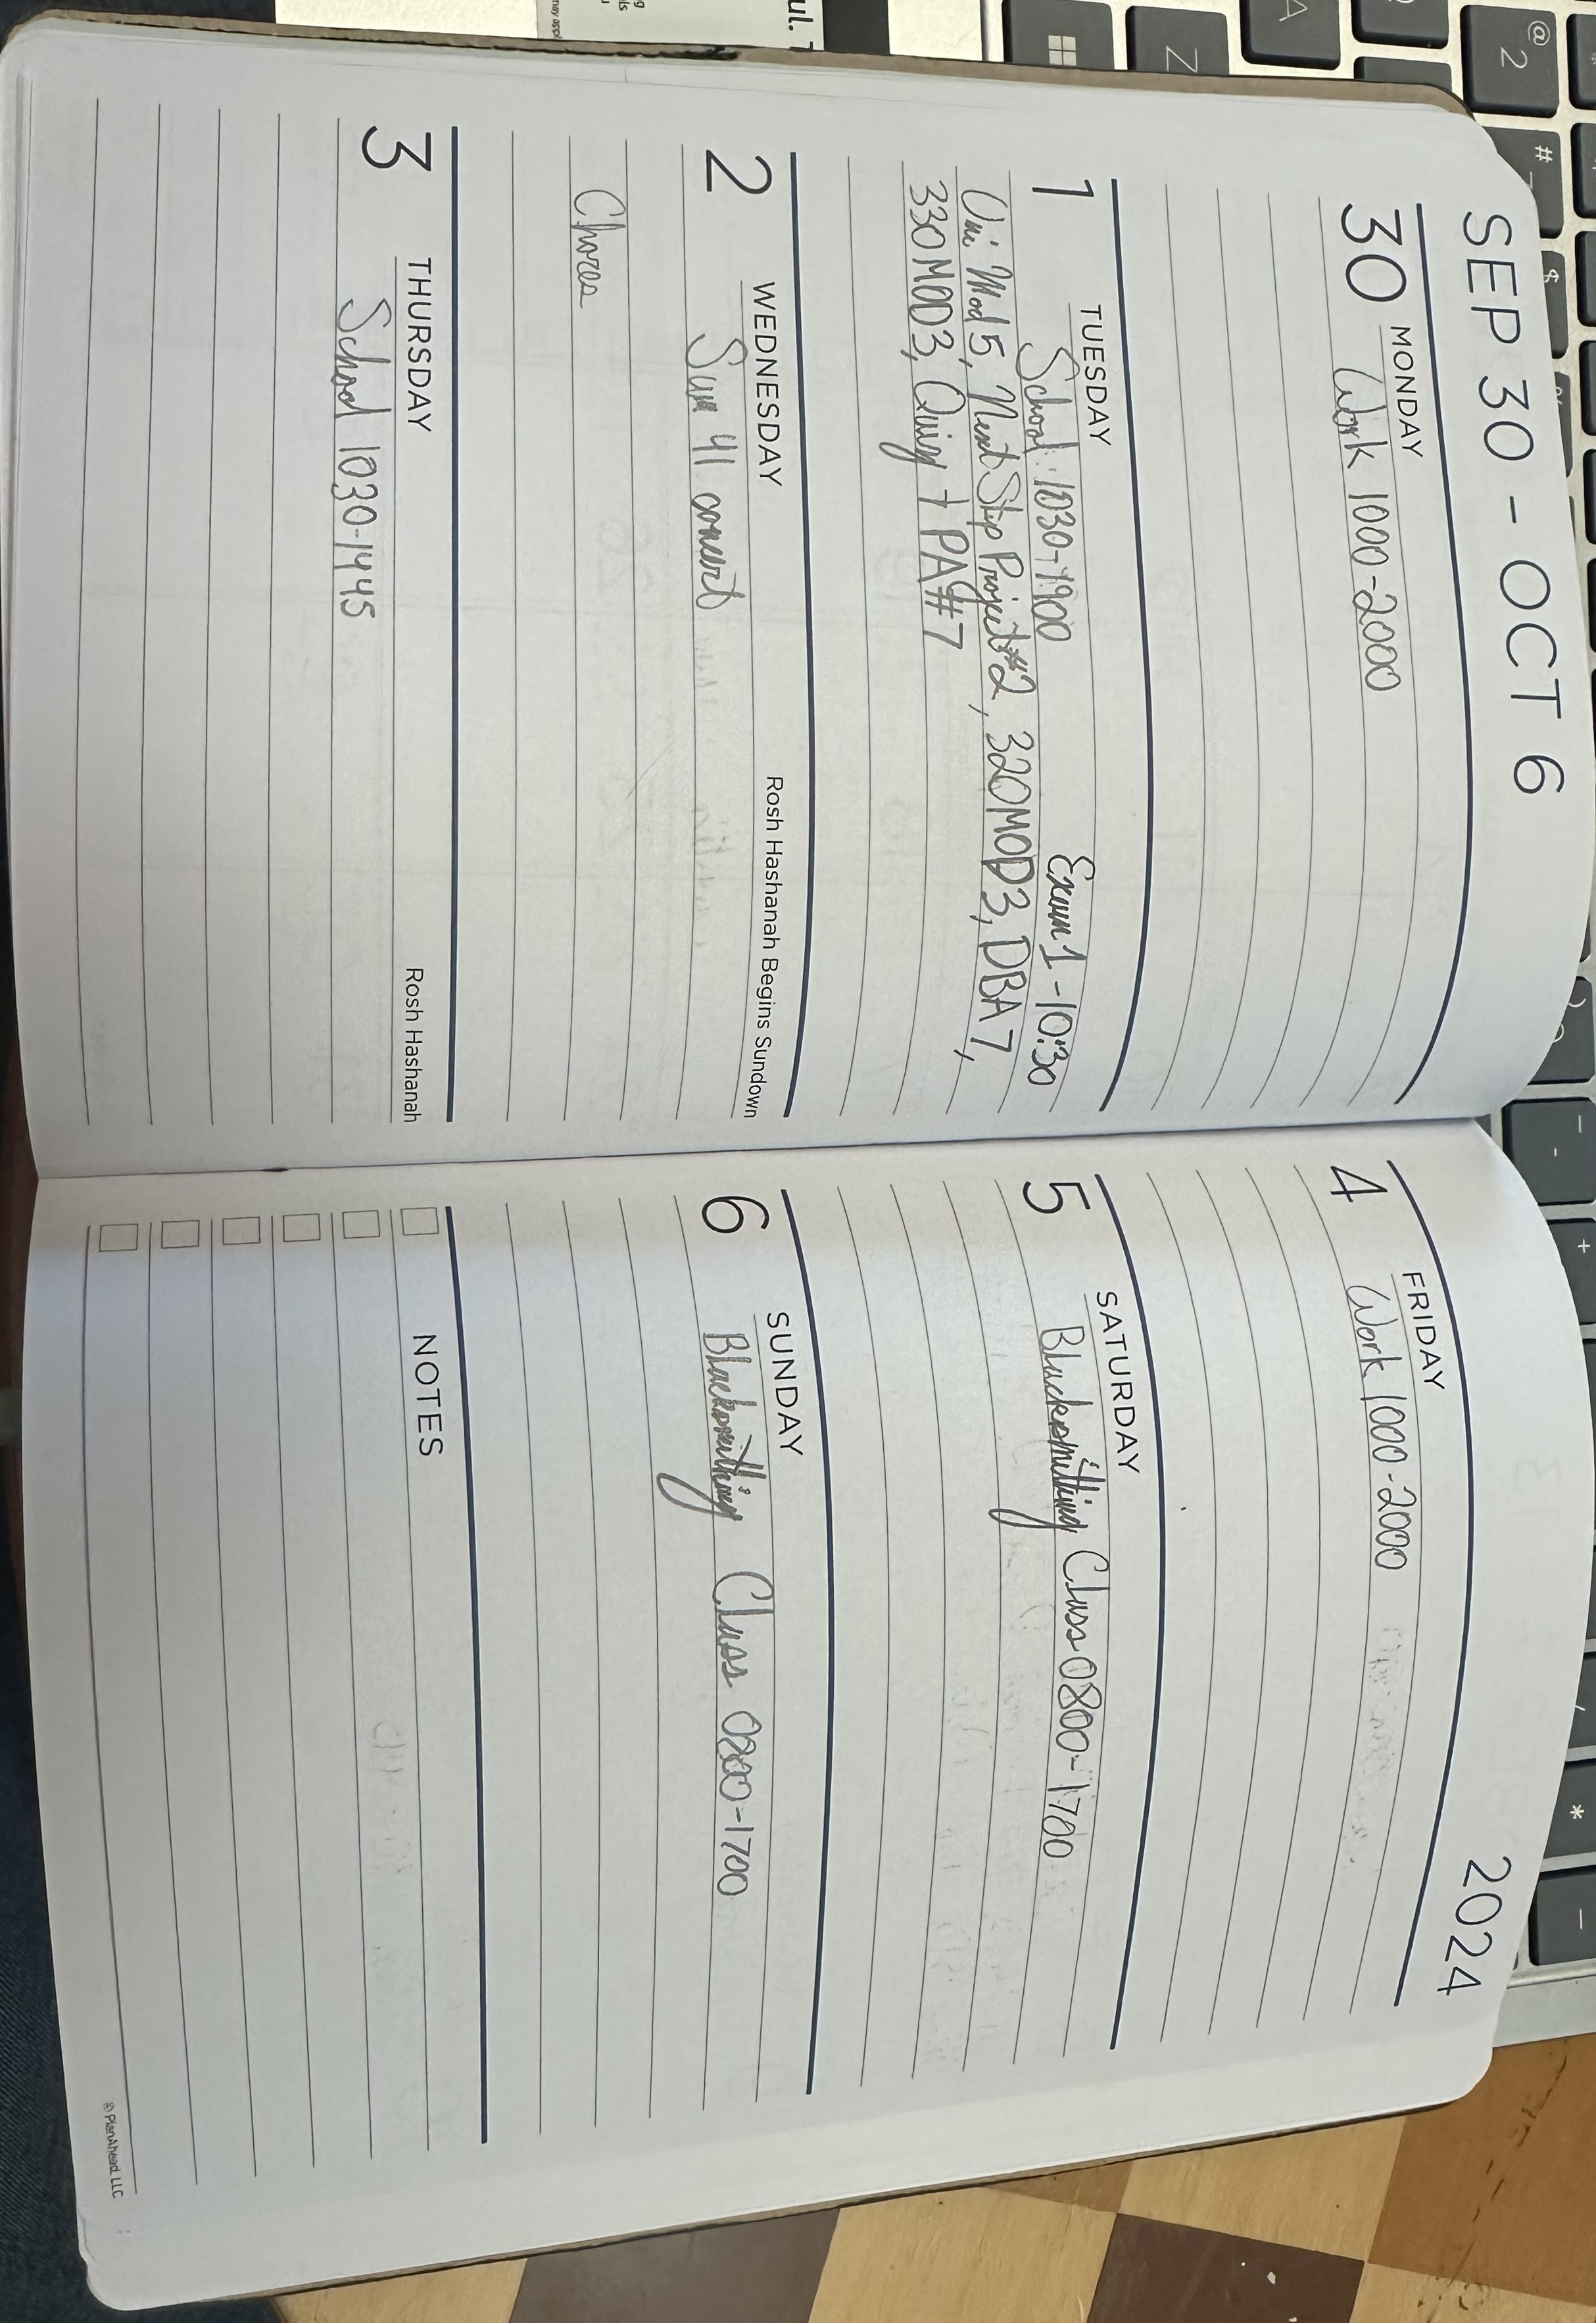 SEP 30 - OCT 6
30 MONDAY
Work 1000-2000
1 TUESDAY
School 1030-1900 Exam 1 -10:30
Uni Mod 5, Next Step Project #2, 320MOD3, DBA7,
330MOD3, Quiz 7 PA#7
2 WEDNESDAY Rosh Hashanah Begins Sundown
Sum 41 concert
Chores
3 THURSDAY Rosh Hashanah
School 1030-1445
2024
4 FRIDAY
Work 1000-2000
5 SATURDAY
Blacksmithing Class 0800-1700
6 SUNDAY
Blacksmithing Class 0800-1700
NOTES
© PlanAhead, LLC
ul.
may appl
A
Z
@
2
#
$
+
*
-